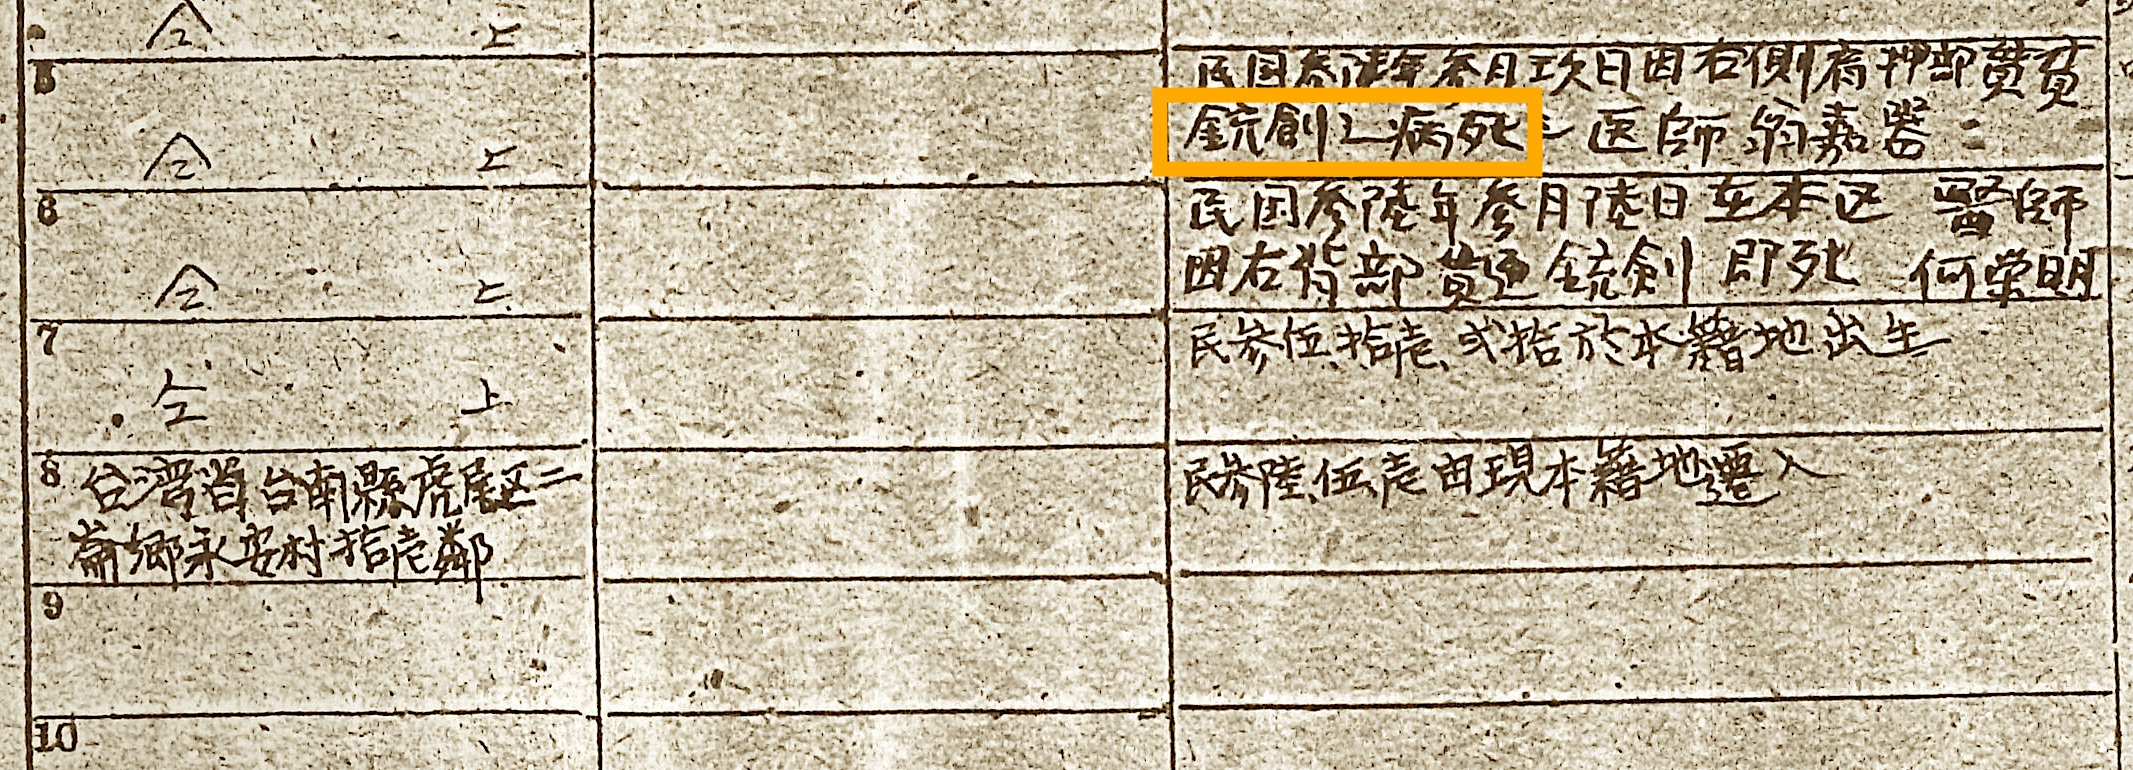 仝 上
5
仝 上
民国叁陸年叁月玖日因右側肩押部貫
銃創之病死 医師 翁嘉器
6
仝 上
民国參陸年參月陸日在本区 醫師
因右背部貫通銃創 即死 何荣明
7
仝 上
民参伍、拾壱、弍拾於本籍地出生
8
台湾省台南縣虎尾区二
崙鄉永安村拾壱鄰
民参陸、伍、壱由現本籍地遷入
9
10